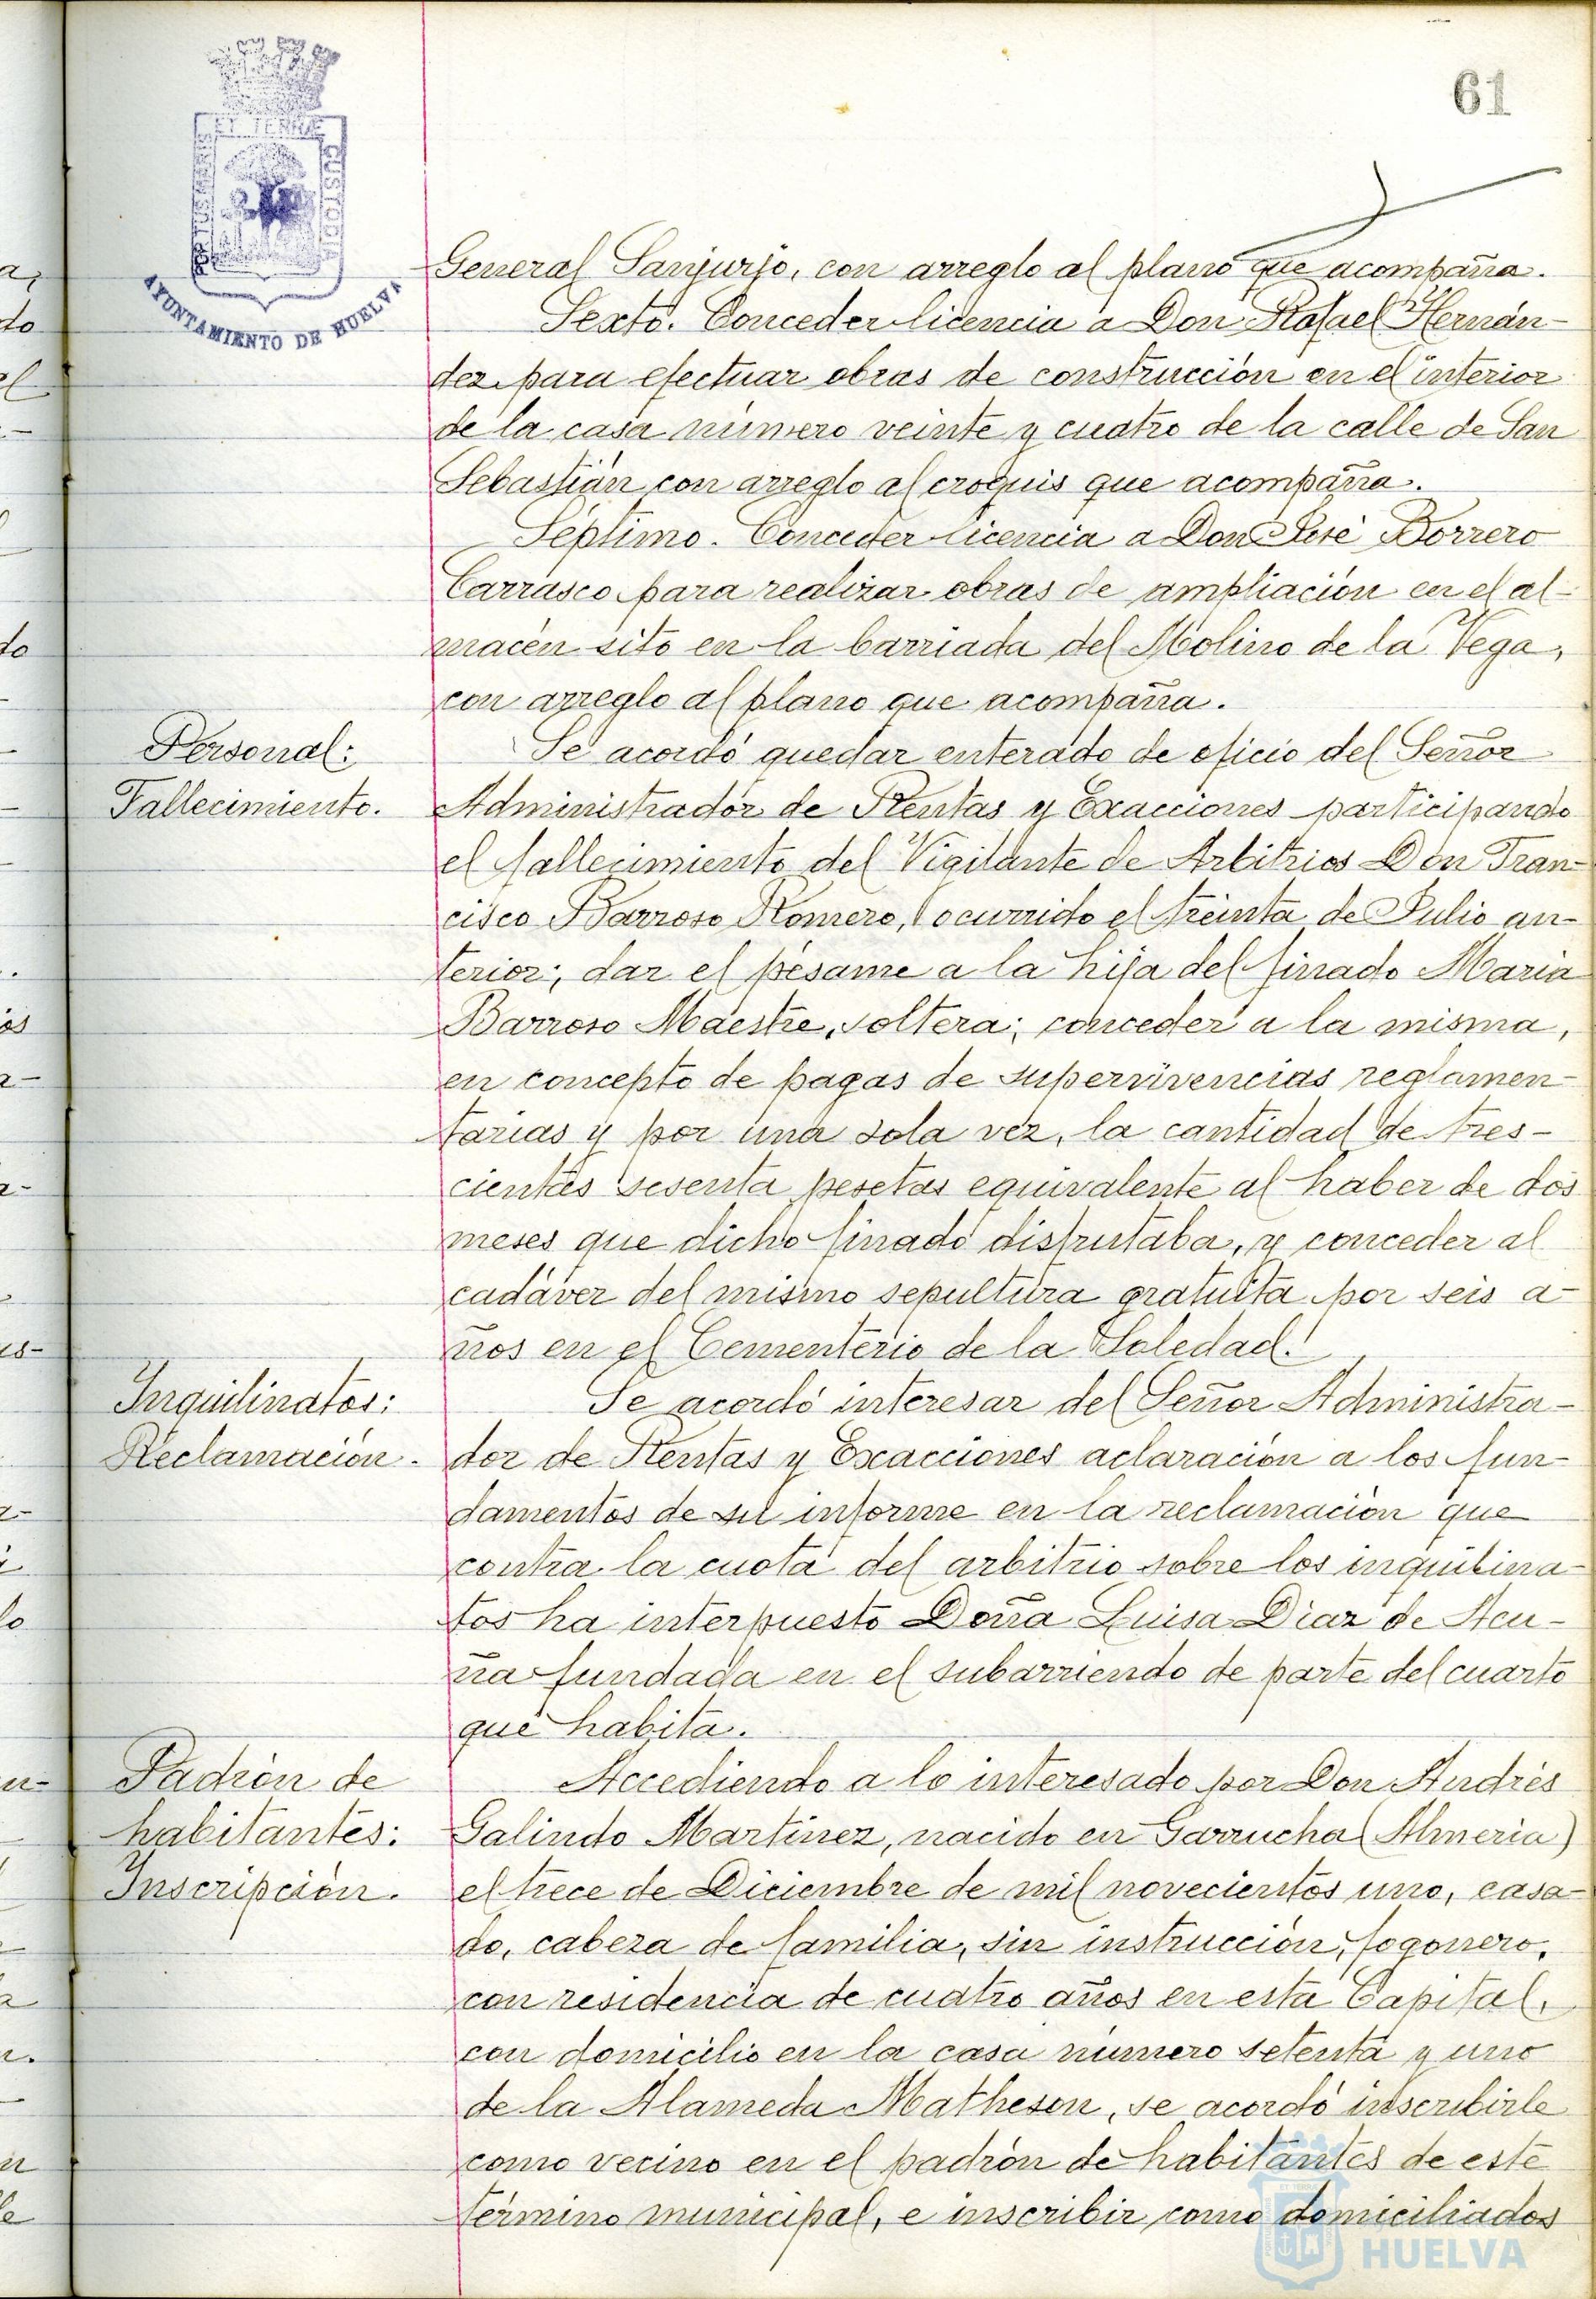 61
PORTUS MARIS ET TERRÆ CUSTODIA
AYUNTAMIENTO DE HUELVA
General Sanjurjo, con arreglo al plano que acompaña.
Sexto. Conceder licencia a Don Rafael Hernán-
dez para efectuar obras de construcción en el interior
de la casa número veinte y cuatro de la calle de San
Sebastián con arreglo al croquis que acompaña.
Séptimo. Conceder licencia a Don José Borrero
Carrasco para realizar obras de ampliación en el al-
macén sito en la barriada del Molino de la Vega,
con arreglo al plano que acompaña.
Personal:
Fallecimiento.
Se acordó quedar enterado de oficio del Señor
Administrador de Rentas y Exacciones participando
el fallecimiento del Vigilante de Arbitrios Don Fran-
cisco Barroso Romero, ocurrido el treinta de Julio an-
terior; dar el pésame a la hija del finado María
Barroso Maestre, soltera; conceder a la misma,
en concepto de pagas de supervivencias reglamen-
tarias y por una sola vez, la cantidad de tres-
cientas sesenta pesetas equivalente al haber de dos
meses que dicho finado disfrutaba, y conceder al
cadáver del mismo sepultura gratuita por seis a-
ños en el Cementerio de la Soledad.
Inquilinatos:
Reclamación.
Se acordó interesar del Señor Administra-
dor de Rentas y Exacciones aclaración a los fun-
damentos de su informe en la reclamación que
contra la cuota del arbitrio sobre los inquilina-
tos ha interpuesto Doña Luisa Díaz de Acu-
ña fundada en el subarriendo de parte del cuarto
que habita.
Padrón de
habitantes:
Inscripción.
Accediendo a lo interesado por Don Andrés
Galindo Martínez, nacido en Garrucha (Almería)
el trece de Diciembre de mil novecientos uno, casa-
do, cabeza de familia, sin instrucción, fogonero,
con residencia de cuatro años en esta Capital,
con domicilio en la casa número setenta y uno
de la Alameda Matheson, se acordó inscribirle
como vecino en el padrón de habitantes de este
término municipal, e inscribir como domiciliados
HUELVA